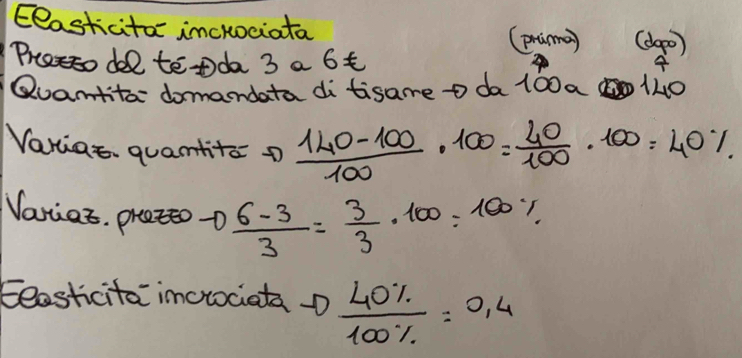 Elasticità incrociata
(prima) (dopo)
Prezzo del tè → da 3 a 6 €
Quantità domandata di tisane → da 100 a 140
Variaz. quantità → 140-100/100 · 100 = 40/100 · 100 = 40%.
Variaz. prezzo → 6-3/3 = 3/3 · 100 = 100%
Elasticità incrociata → 40%/100% = 0,4